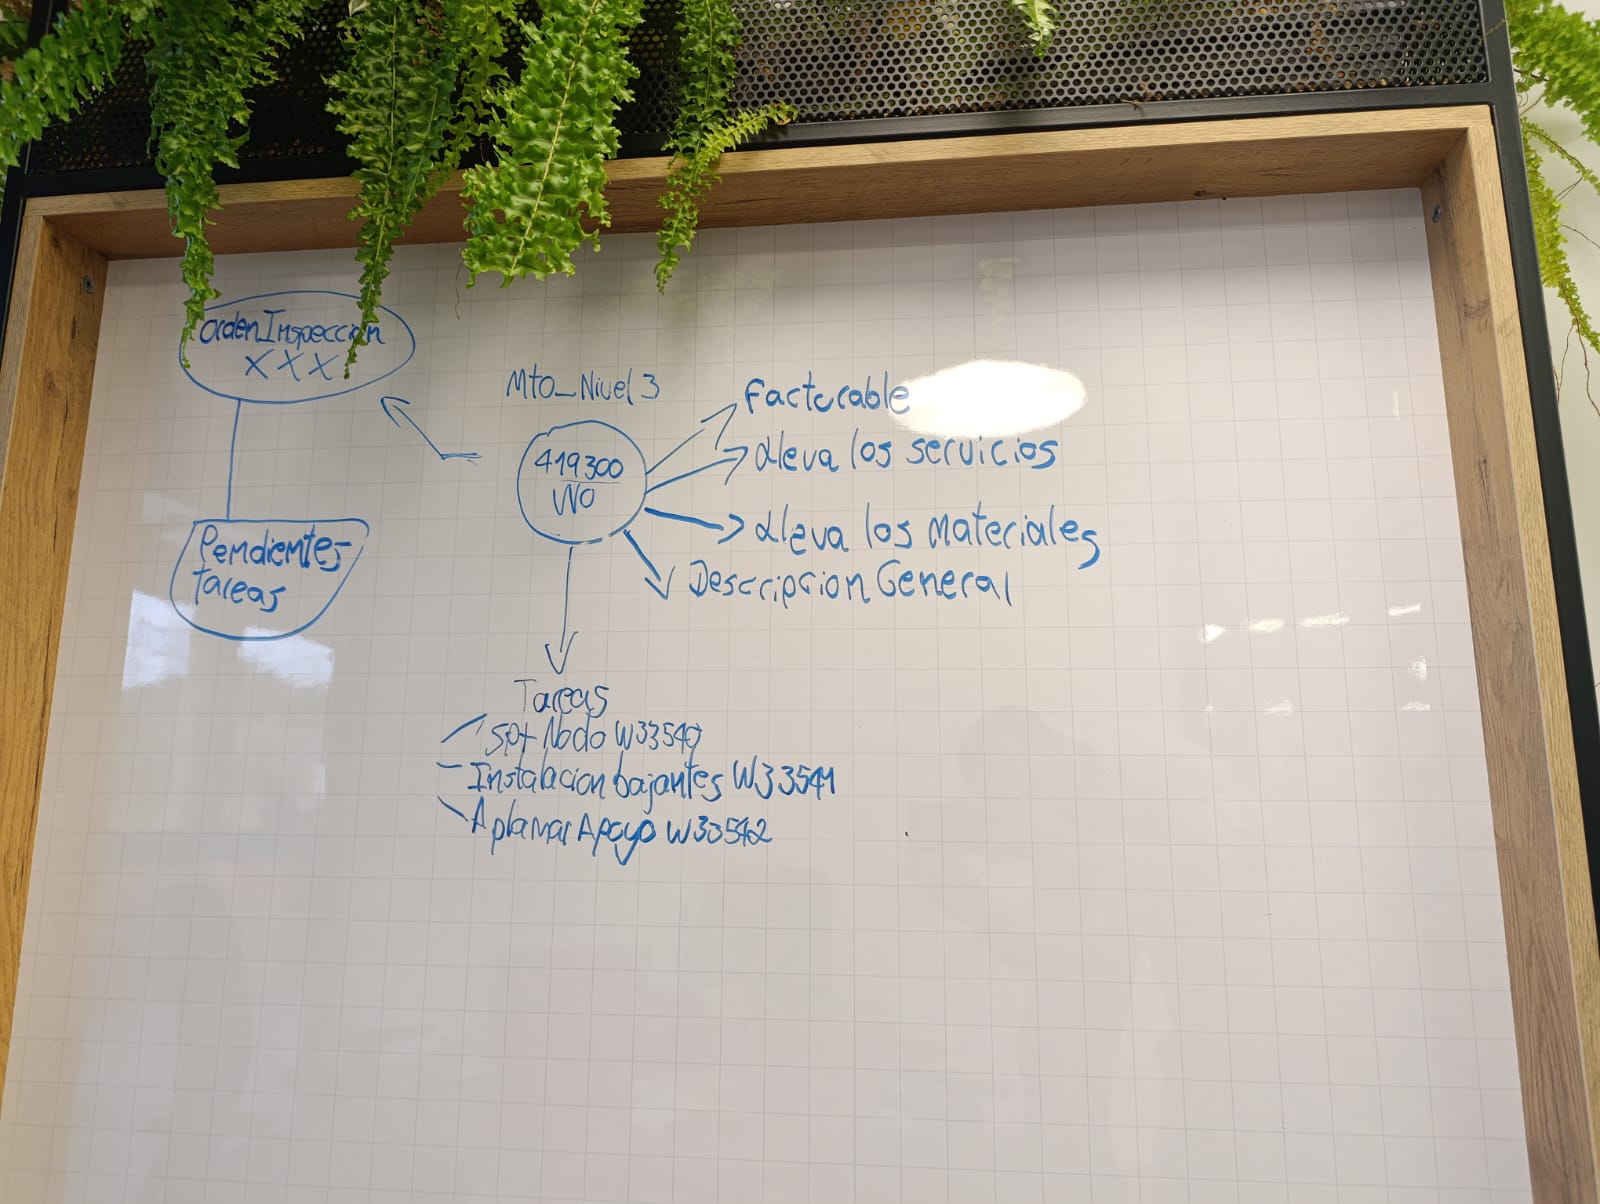 Orden Inspeccion
XXX
Pendientes
tareas
Mto_Nivel 3
419300
WO
Facturable
lleva los servicios
lleva los Materiales
Descripcion General
Tareas
Spt Nodo W33540
Instalacion bajantes W33541
Aplanar Apoyo W33542